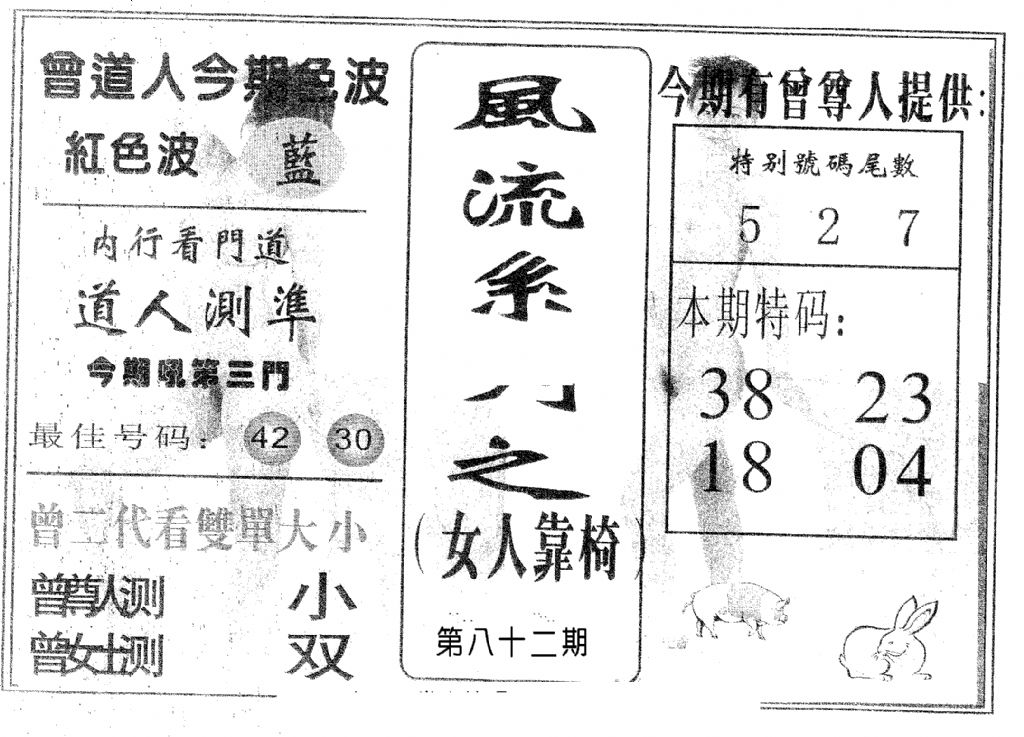 曾道人今期色波
紅色波 藍
内行看門道
道人測準
今期吼第三門
最佳号码： 42 30
曾二代看雙單大小
曾尊人测 小
曾女士测 双
風
流
系
之
（女人靠椅）
第八十二期
今期有曾尊人提供：
特别號碼尾數
5 2 7
本期特码：
38 23
18 04